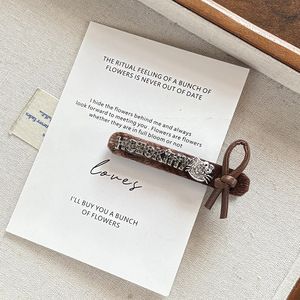 THE RITUAL FEELING OF A BUNCH OF
FLOWERS IS NEVER OUT OF DATE
I hide the flowers behind me and always
look forward to meeting you . Flowers are flowers
whether they are in full bloom or not
loves
I'LL BUY YOU A BUNCH
OF FLOWERS